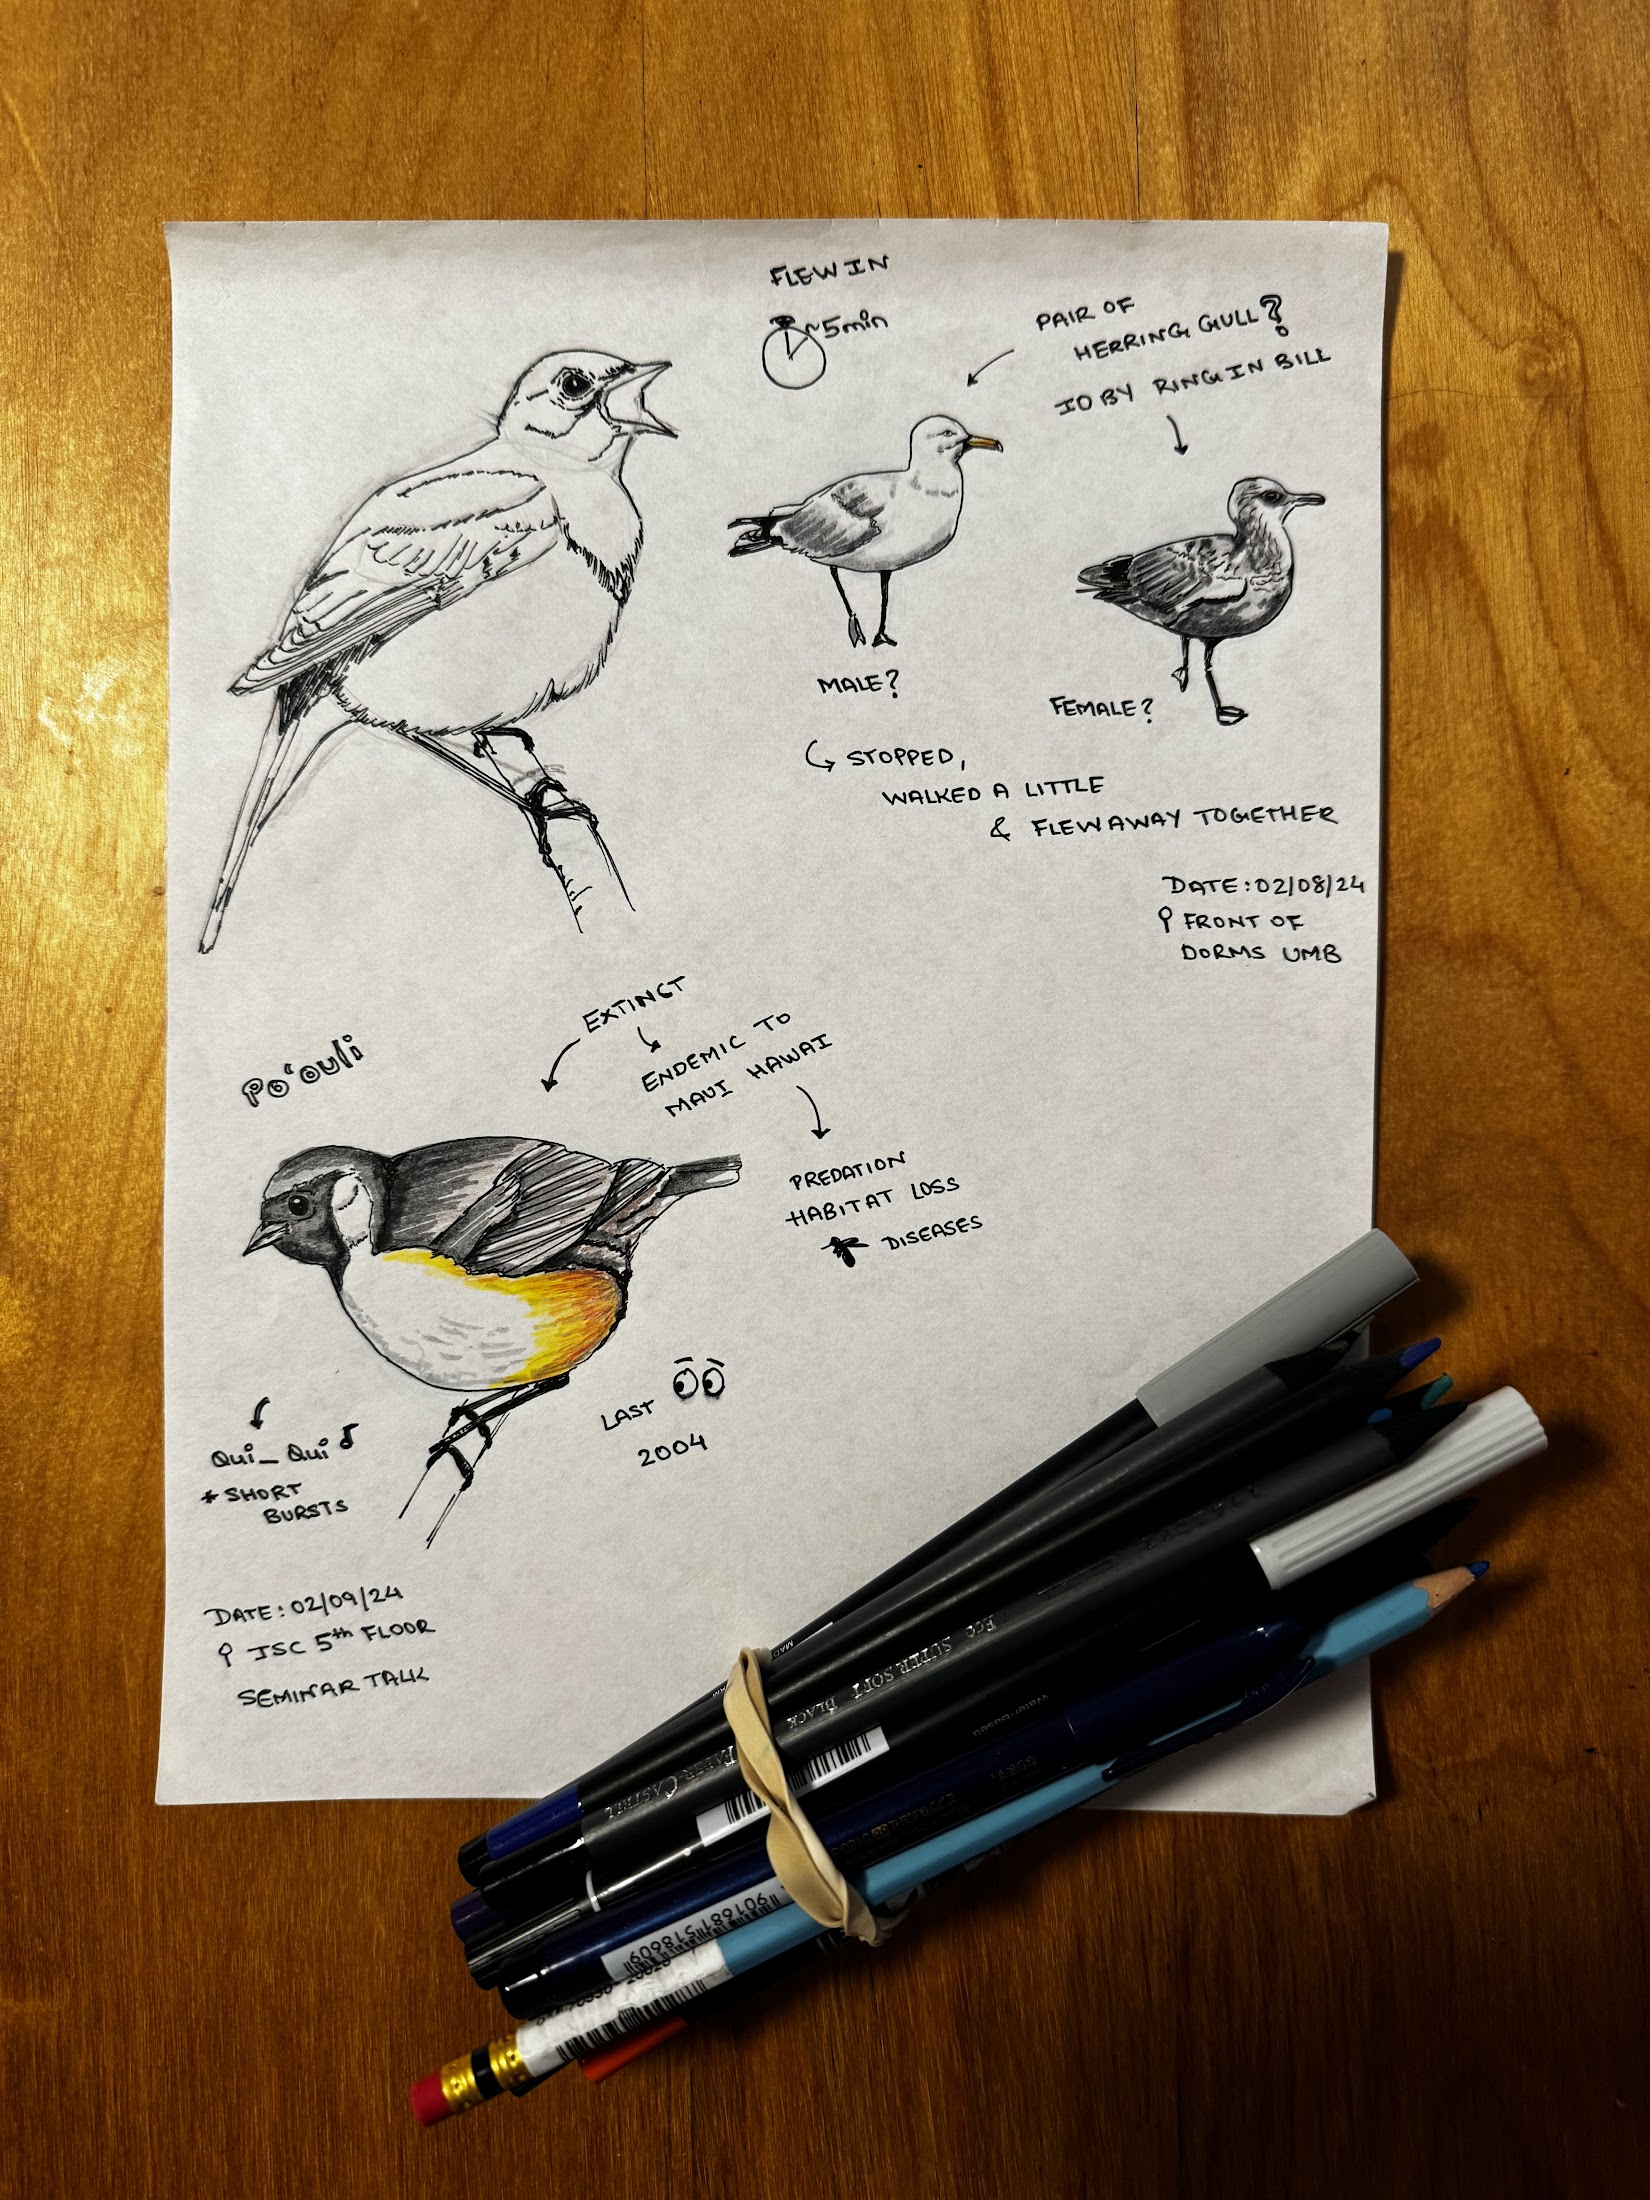 FLEW IN
~5min
PAIR OF
HERRING GULL?
ID BY RING IN BILL
MALE?
FEMALE?
STOPPED,
WALKED A LITTLE
& FLEW AWAY TOGETHER
DATE: 02/08/24
FRONT OF
DORMS UMB
EXTINCT
ENDEMIC TO
MAUI HAWAI
PREDATION
HABITAT LOSS
DISEASES
Po'ouli
LAST
2004
Qui_ Qui
* SHORT
BURSTS
DATE: 02/09/24
ISC 5th FLOOR
SEMINAR TALK
ECO SUPERSOFT BLACK
FABER CASTELL
Water-Based